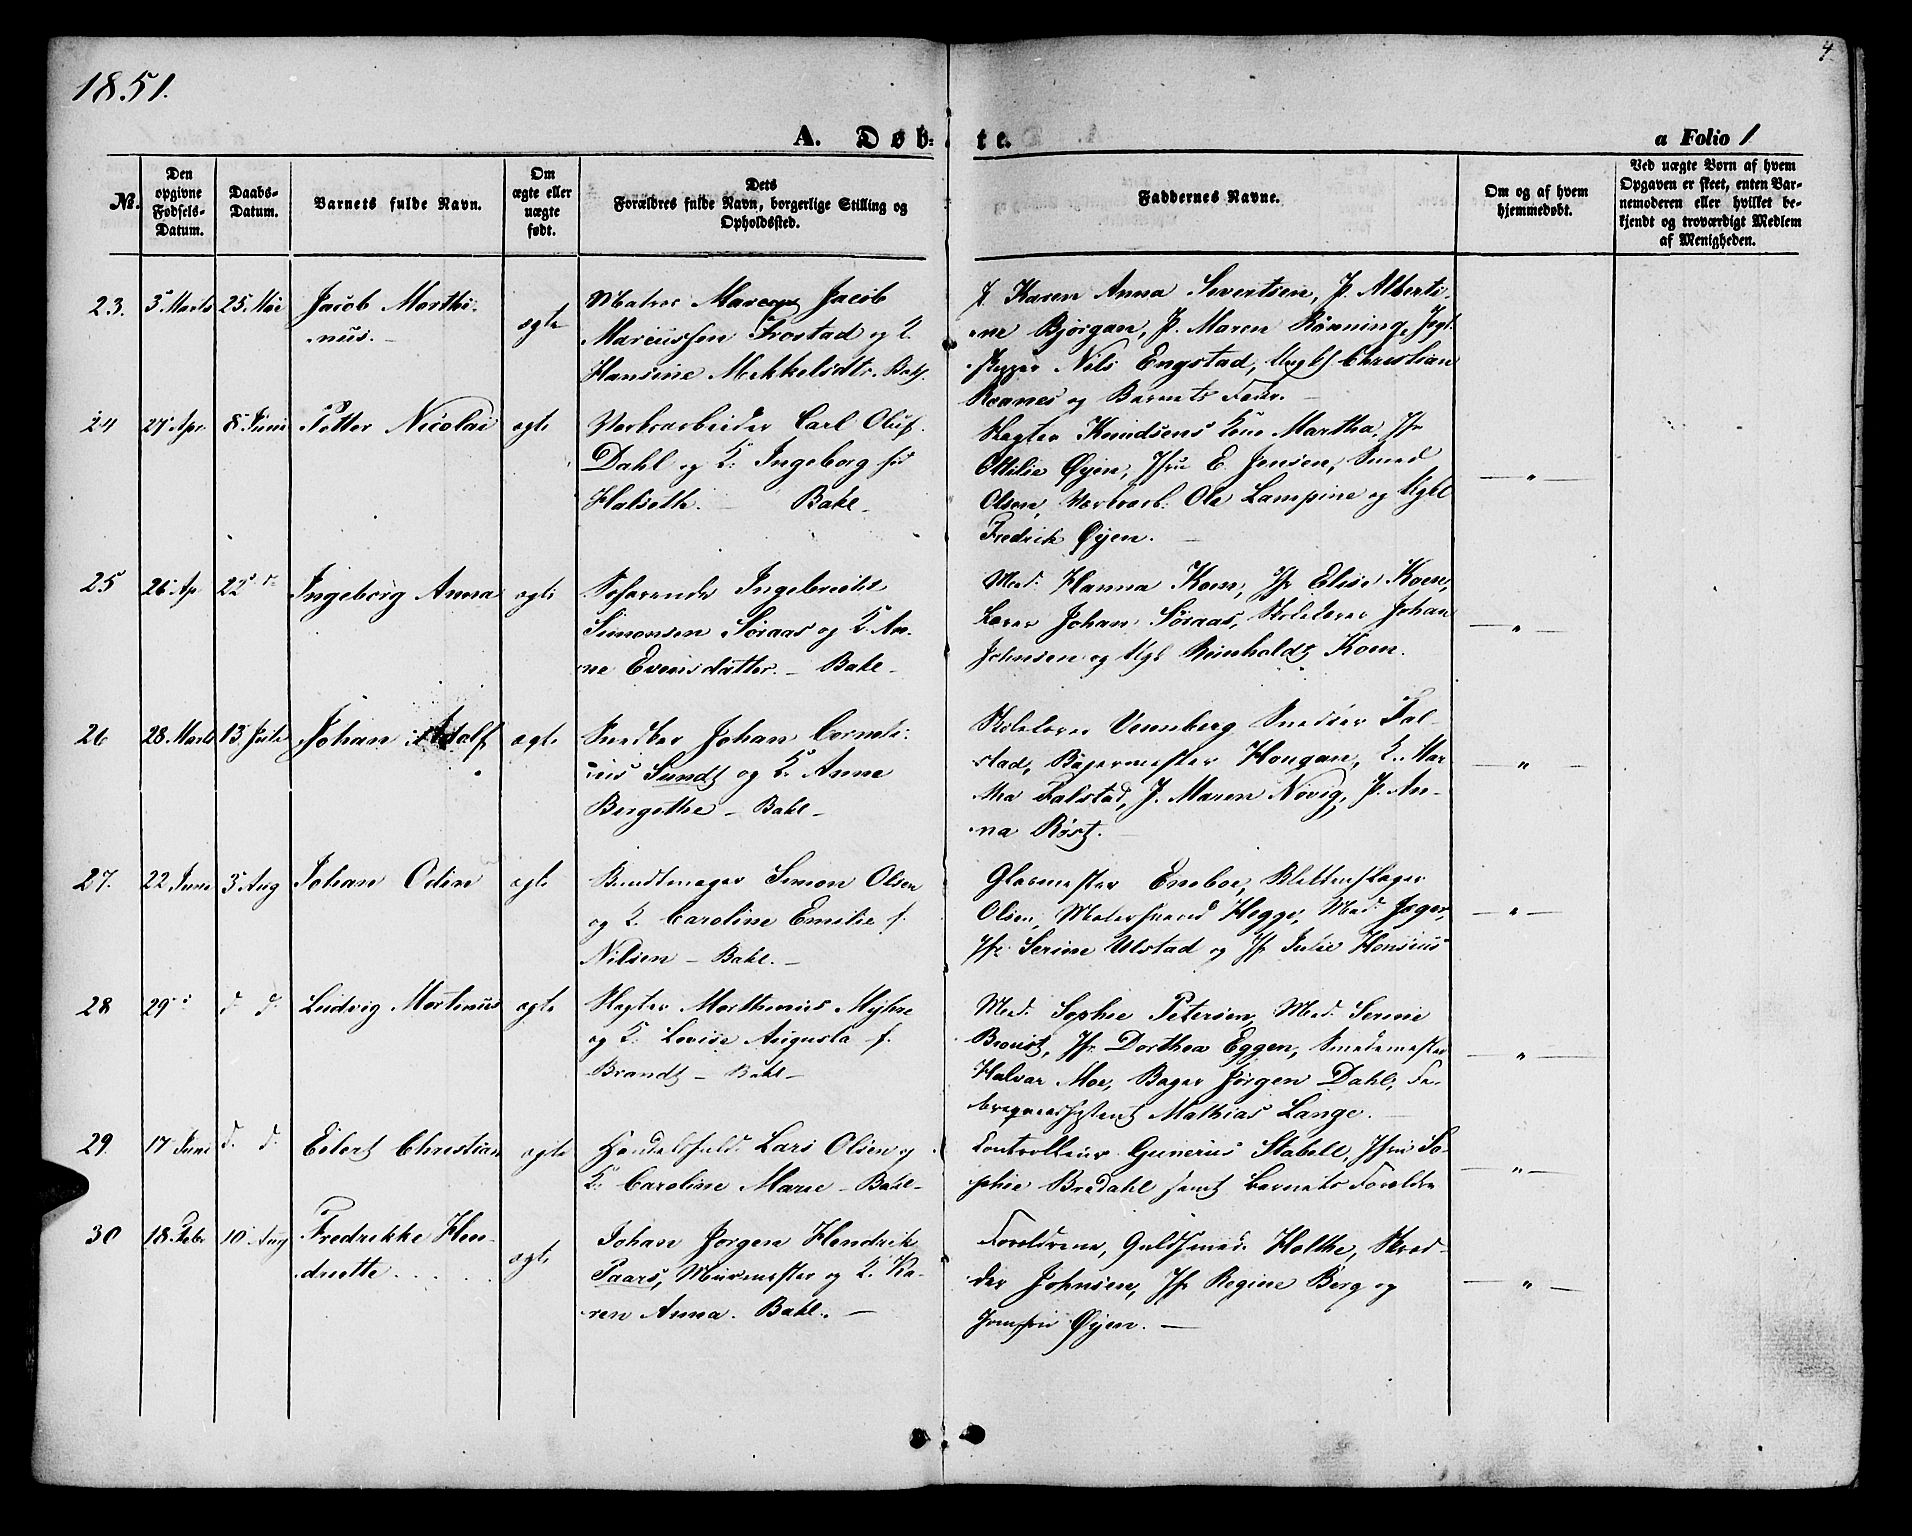 4
1851.
A. Døb-te.
a Folio 1
No.
Den opgivne Fødsels-Datum.
Daabs-Datum.
Barnets fulde Navn.
Om ægte eller uægte født.
Dets Forældres fulde Navn, borgerlige Stilling og Opholdssted.
Faddernes Navne.
Om og af hvem hjemmedøbt.
Ved uægte Born af hvem Opgaven er skeet, enten Bar-nemoderen eller hvilket be-kjendt og troværdigt Medlem af Menigheden.
23. 3 Marts 25 Mai Jacob Morthi-
nus.
ægte
Jacob
Marcussen Frostad og K.
Hansine Mekkelsdtr. Bakl.
P. Karen Anna Sivertsen, P. Alberti-
ne Bjørgan, P. Maren Rönning,
Nils Engstad, Ungk Christian
Ranes og Barnets Fader.
24 27 Apr. 8 Juni Petter Nicolai ægte
Verksarbeider Carl Oluf
Dahl og K. Ingeborg fød
Halseth. — Bakl.
Slagter Knudsens Kone Martha, Jfr
Ottilie Øyen, Jfru E. Jensen, Smed
Olsen, Værksarb. Ole Lampine og Ugkl
Fredrik Øyen.
— " —
25 26 Ap 22 Ingeborg Anna ægte
Søfarende Ingebrecht
Simonsen Søraas og K. An-
ne Evensdatter. — Bakl.
Mad. Hanna Koen, Jfr Elise Koen,
Johan Søraas, Skolelærer Johan
Johnsen og Ugk Reinholdt Koen.
— " —
26 28 Marts 13 Julie Johan Adolf ægte
Snedker Johan Corneli-
ius Sundt og K. Anne
Bergethe — Bakl.
Skolelærer Vennberg Snedker Fal-
stad, Bagermester Hougan, K. Mar-
tha Falstad, J. Maren Növig, P. An-
na Röst.
— " —
27. 22 Juni 3 Aug Johan Odin ægte
Bundtmager Simon Olsen
og K. Caroline Emilie f.
Nilsen — Bakl.
Glasmester Eneboe, Blikkenslager
Olsen, Malersvend Hegge, Mad. Jæger,
Jfr. Serine Ulstad og Jfr Julie Hensius
— " —
28 29 d d. Ludvig Mortinus ægte
Slagter Morthinus Myhre
og K. Lovise Augusta f.
Brandt — Bakl.
Mad. Sophie Petersen, Mad. Serine
Jfr Dorthea Eggen, Smedemester
Halvar Moe, Bager Jörgen Dahl, Fa-
Mathias Lange.
— " —
29. 17 Juni d. d. Eilert Christian ægte
Handelsfuldm. Lars Olsen og
K. Caroline Marie — Bakl.
Controlleur Gunerius Stabell, Jfru So-
phie Bredahl samt Barnets Forældre
— " —
30 18 Febr 10 Aug Fredrikke Hen-
driette
ægte
Johan Jørgen Hendrik
Paars, Murmester og K. Ka-
ren Anna. Bakl. —
Forældrene, Guldsmed Holthe, Skræd-
der Johnsen, Jfr Regine Berg og
Jomfru Øyen.
— " —